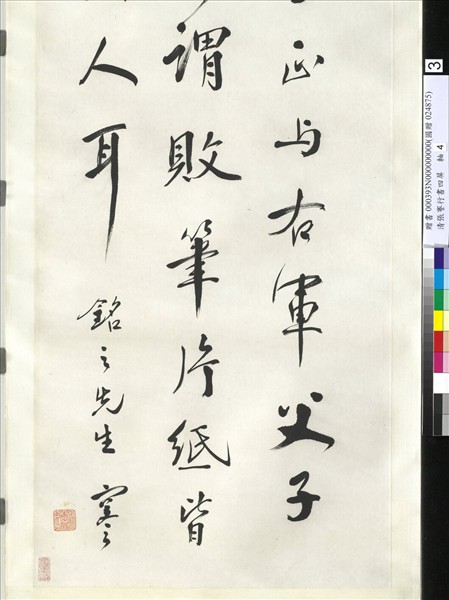 正与右軍父子
謂敗筆片紙皆
人耳
銘之先生 謇
3
贈書 000393N000000000(國贈 024875)
清張謇行書四屏 軸 4